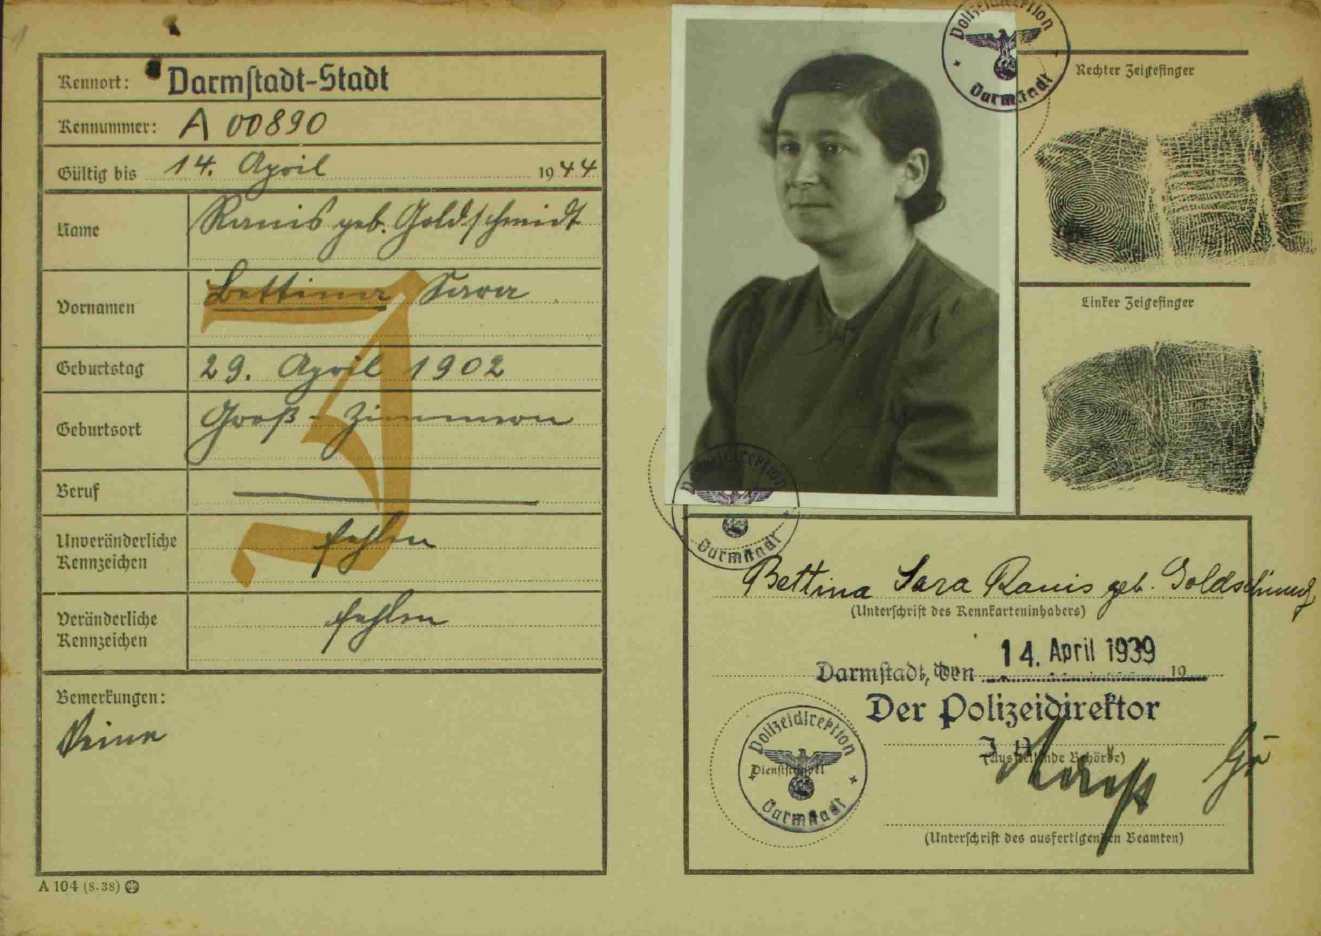 Polizeidirektion
Darmstadt
Kennort: Darmstadt-Stadt
Kennummer: A 00890
Gültig bis 14. April 1944
Name Ranis geb. Goldschmidt
Vornamen Bettina Sara
Geburtstag 29. April 1902
Geburtsort Groß-Zimmern
Beruf
Unveränderliche
Kennzeichen fehlen
Veränderliche
Kennzeichen fehlen
Bemerkungen:
Keine
A 104 (8.38)
J
Rechter Zeigefinger
Linker Zeigefinger
Polizeidirektion
Darmstadt
Bettina Sara Ranis geb. Goldschmidt
(Unterschrift des Kennkarteninhabers)
Darmstadt, den 14. April 1939 19
Der Polizeidirektor
(Ausstellende Behörde)
Polizeidirektion
Dienststempel
Darmstadt
(Unterschrift des ausfertigenden Beamten)